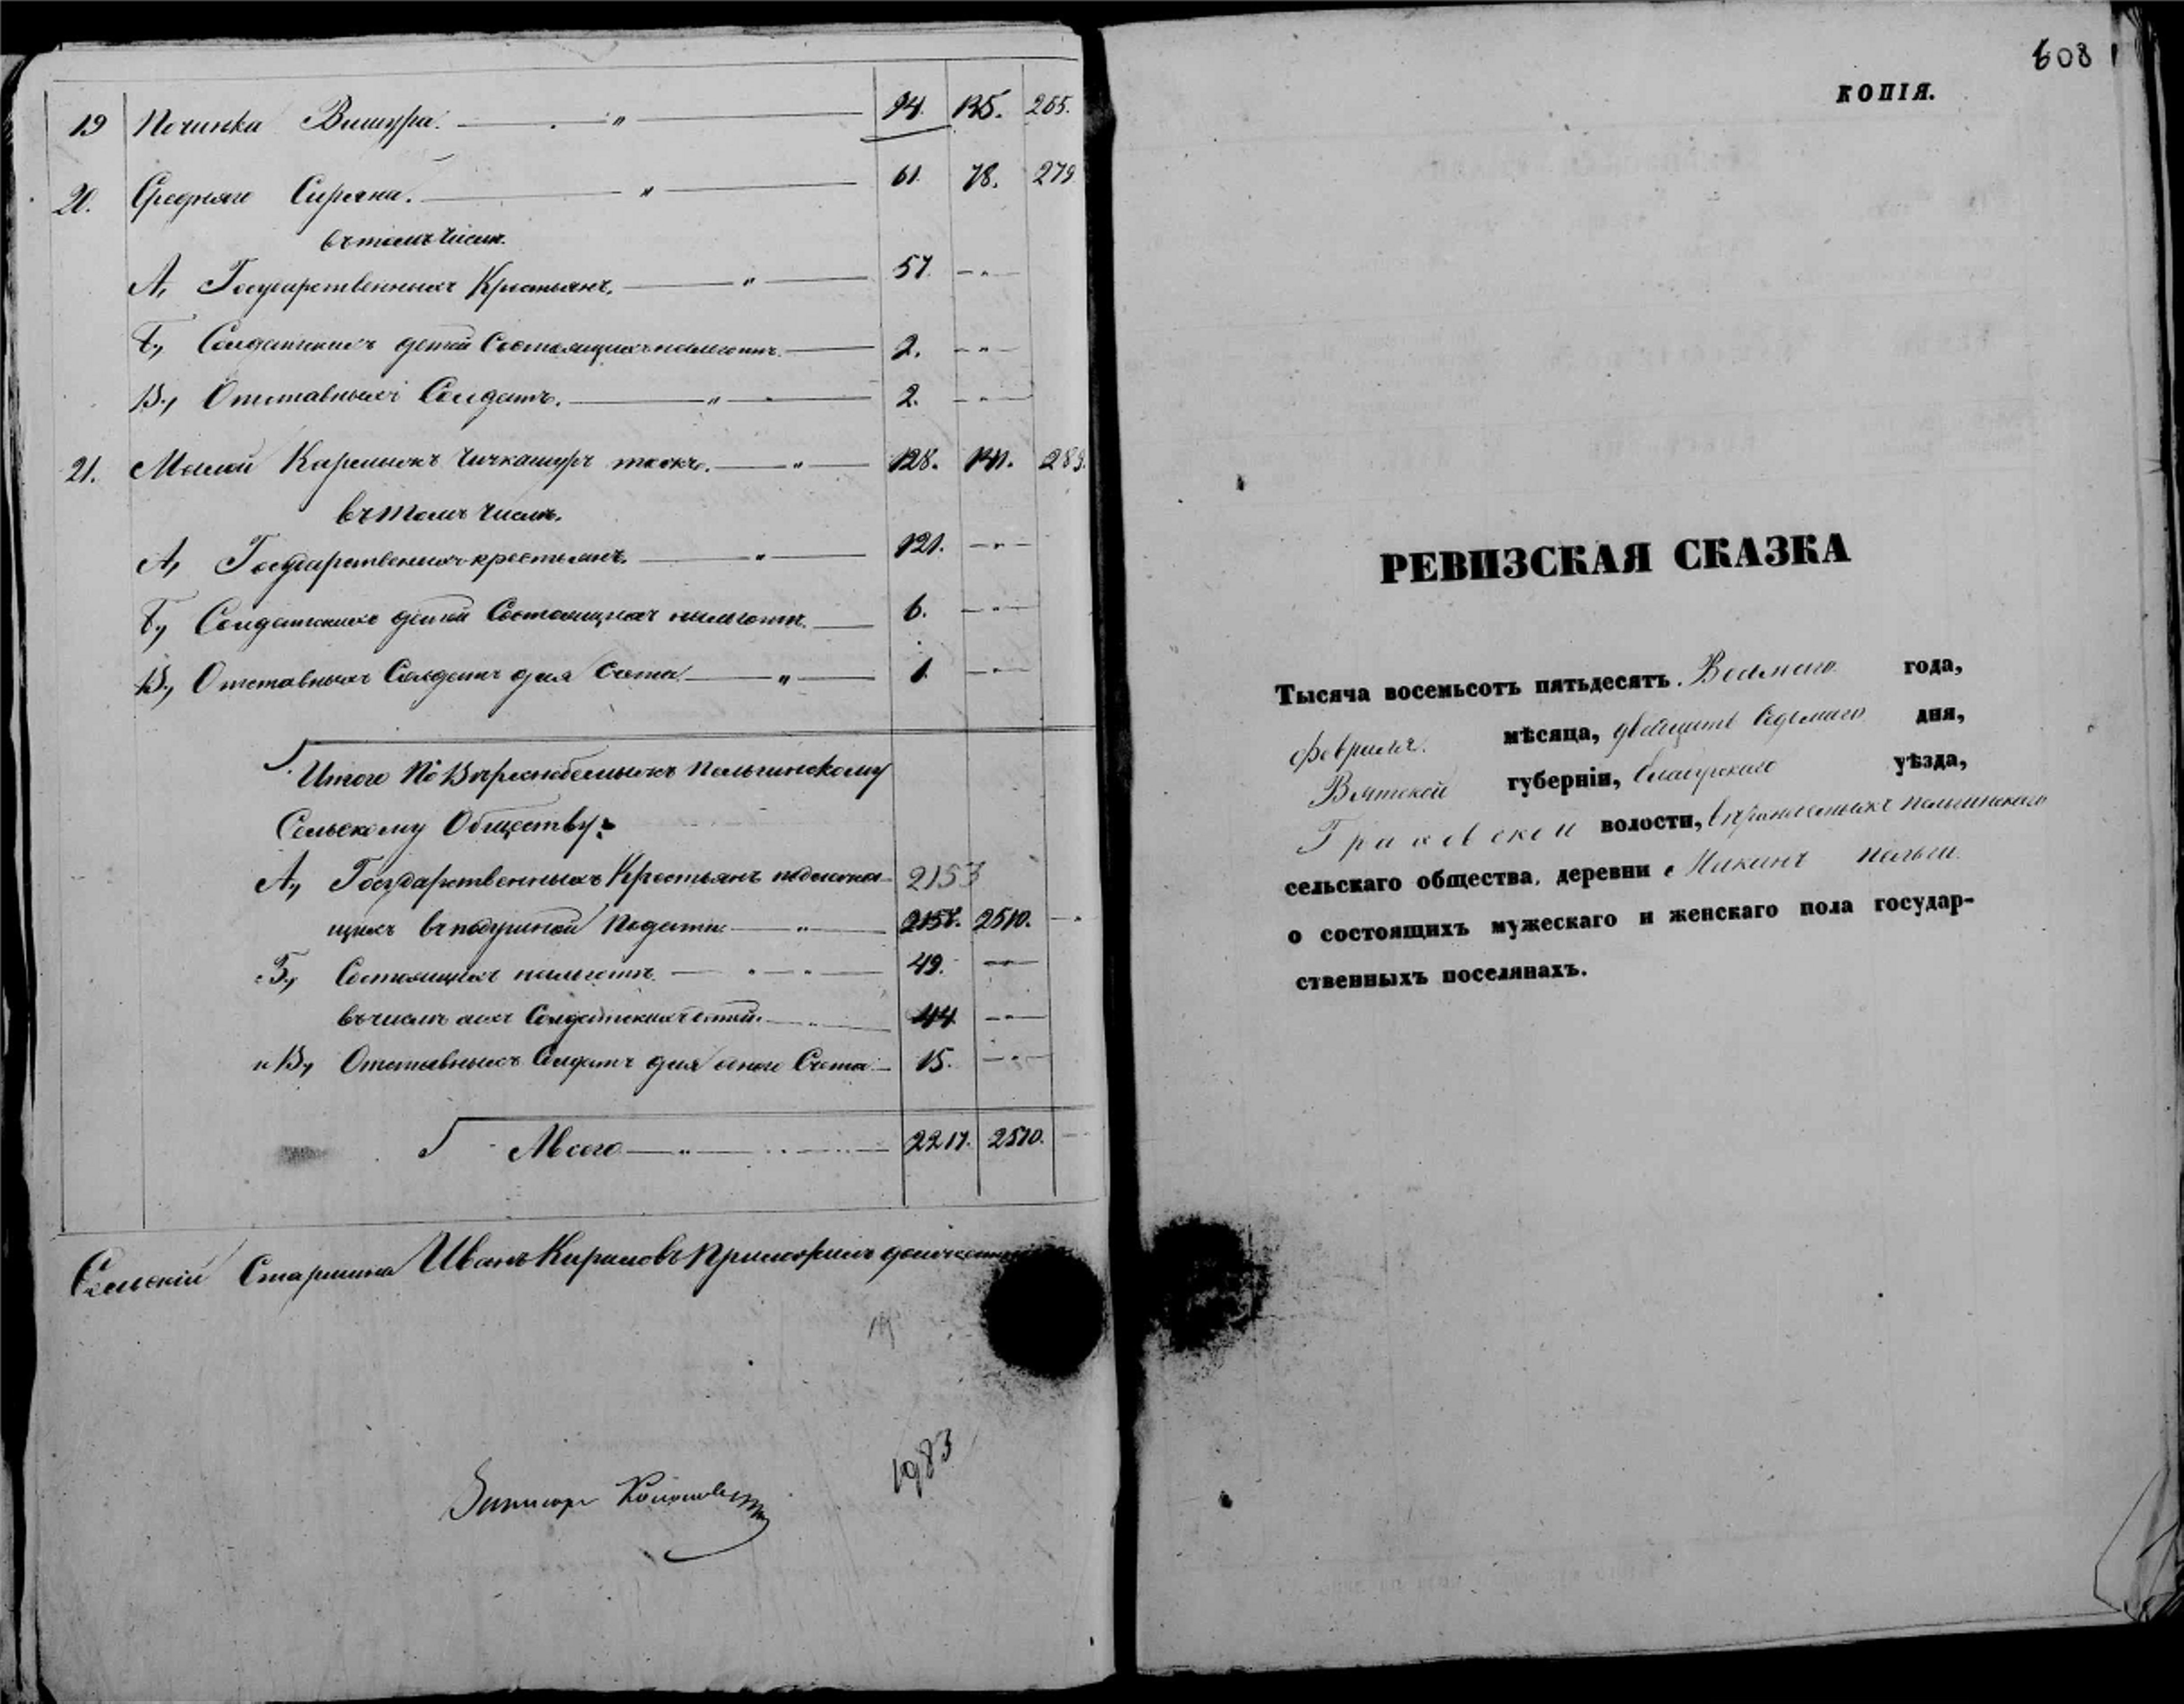 19 Починка Вишура. — " — 94. 135. 265.
20. Средняго Сиряна. — " — 61. 78. 279
въ томъ числѣ.
А, Государственныхъ Крестьянъ. — " — 57. — " —
Б, Солдатскихъ дѣтей Состоящихъ на льготѣ. — 2. — " —
В, Отставныхъ Солдатъ. — " — 2. — " —
21. Малой Кармыжъ Чичкашуръ тожъ. — " — 128. 141. 289.
въ томъ числѣ.
А, Государственныхъ крестьянъ. — " — 121. — " —
Б, Солдатскихъ дѣтей Состоящихъ на льготѣ. — 6. — " —
В, Отставныхъ Солдатъ для счета — " — 1. — " —
Итого По
Сельскому Обществу:
А, Государственныхъ Крестьянъ подлежа- 2153
щихъ въ подушной Подати — " — 2510.
Б, Состоящихъ на льготѣ — 49. —
въ числѣ ихъ Солдатскихъ дѣтей. — 44 —
и В, Отставныхъ Солдатъ для Счета — 15. — " —
Всего — " — 2217. 2510. —
Сельскій Старшина Иванъ Кириловъ
1983
608
КОПІЯ.
РЕВИЗСКАЯ СКАЗКА
Тысяча восемьсотъ пятьдесятъ Восмаго года,
Февраля мѣсяца, двадцать седьмаго дня,
Вятской губерніи, Елабужскаго уѣзда,
Граховской волости,
сельскаго общества, деревни
о состоящихъ мужескаго и женскаго пола государ-
ственныхъ поселянахъ.